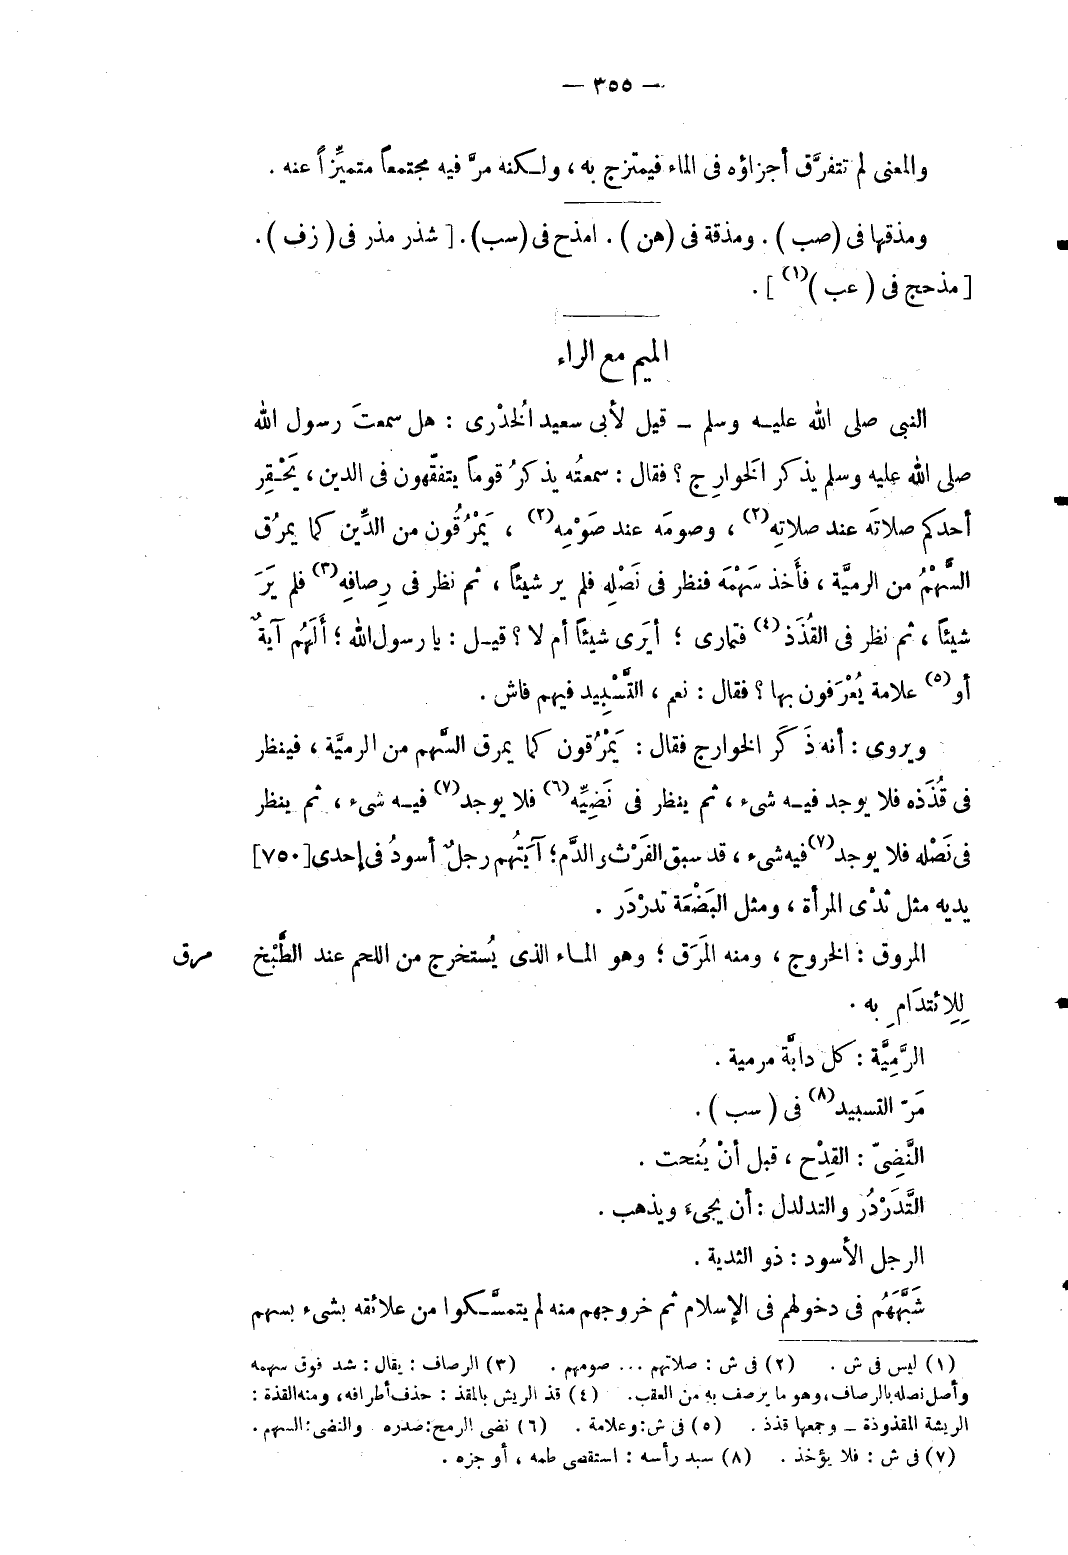 — ٣٥٥ —
والمعنى لم تتفرَّق أجزاؤه فى الماء فيمتزج به ، ولـكنه مرَّ فيه مجتمعاً متميِّزاً عنه .
ومذقها فى (صب ) . ومذقة فى (هن ) . امذح فى (سب) . [ شذر مذر فى ( زف ) .
[ مذحج فى ( عب )(١) ] .
الميم مع الراء
النبى صلى الله عليـه وسلم – قيل لأبى سعيد الُخدْرى : هل سمعتَ رسول الله
صلى الله عليه وسلم يذكر الَخوارِج ؟ فقال : سمعتُه يذكرُ قوماً يتفقّهون فى الدين ، يَحْـقِر
أحدكم صلاتَه عند صلاتِه(٢) ، وصومَه عند صَوْمِه(٢) ، يَمْرُقُون من الدِّين كما يمرُق
السَّهْمُ من الرميَّة ، فأَخذ سَهْمَه فنظر فى نَصْلِه فلم ير شيئاً ، ثم نظر فى رِصافِه(٣) فلم يَرَ
شيئاً ، ثم نظر فى القُذَذ(٤) فتمارى ؛ أيَرى شيئاً أم لا ؟ قيـل : يا رسول الله ؛ أَلَهُم آيةٌ
أو(٥) علامة يُعْرَفون بها ؟ فقال : نعم ، التَّسْبِيد فيهم فاش .
ويروى : أنه ذَكَر الخوارج فقال : يَمْرُقون كما يمرق السَّهم من الرميَّة ، فينظر
فى قُذَذه فلا يوجد فيـه شىء ، ثم ينظر فى نَضِيِّه(٦) فلا يوجد(٧) فيـه شىء ، ثم ينظر
فى نَصْله فلا يوجد(٧) فيه شىء ، قد سبق الفَرْث والدَّم ؛ آيَتُهم رجلٌ أسودُ فى إحدى [٧٥٠]
يديه مثل ثَدْى المرأة ، ومثل البَضْعَة تدرْدَر .
المروق : الخروج ، ومنه المَرَق ؛ وهو المـاء الذى يُستخرج من اللحم عند الطَّبْخ مرق
لِلِائتدَامِ به .
الرَّمِيَّة : كل دابَّة مرمية .
مَرّ التسبيد(٨) فى ( سب ) .
النَّضِىّ : القِدْح ، قبل أنْ يُنحت .
التَّدَرْدُر والتدلدل : أن يجىءَ ويذهب .
الرجل الأسود : ذو الثدية .
شَبَّهَهُم فى دخولهم فى الإسلام ثم خروجهم منه لم يتمسَّـكوا من علائقه بشىء بسهم
(١) ليس فى ش . (٢) فى ش : صلاتهم ... صومهم . (٣) الرصاف : يقال : شد فوق سهمه
وأصل نصله بالرصاف، وهو ما يرصف به من العقب. (٤) قذ الريش بالمقذ : حذف أطرافه، ومنه القذة :
الريشة المقذوذة – وجمعها قذذ . (٥) فى ش: وعلامة . (٦) نضى الرمح: صدره والنضى: السهم .
(٧) فى ش : فلا يؤخذ . (٨) سبد رأسه : استقصى طمه ، أو جزه .